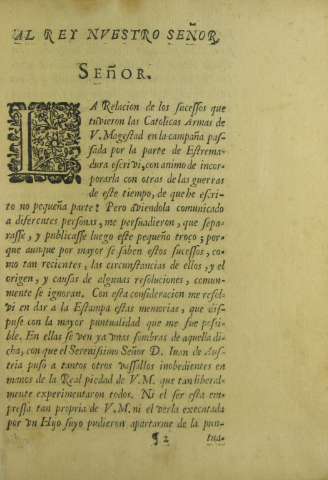 AL REY NVESTRO SEÑOR,
SEÑOR.
LA Relacion de los sucessos que
tuvieron las Catolicas Armas de
V. Magestad en la campaña pas-
sada por la parte de Estrema-
dura escrivi, con animo de incor-
porarla con otras de las guerras
de este tiempo, de que he escri-
to no pequeña parte: Pero aviendola comunicado
a diferentes personas, me persuadieron, que sepa-
rasse, y publicasse luego este pequeño troço; por-
que aunque por mayor se saben estos sucessos, co-
mo tan recientes, las circunstancias de ellos, y el
origen, y causas de algunas resoluciones, comun-
mente se ignoran. Con esta consideracion me resol-
vi en dar a la Estampa estas memorias, que dis-
puse con la mayor puntualidad que me fue possi-
ble. En ellas se ven ya vnas sombras de aquella di-
cha, con que el Serenissimo Señor D. Iuan de Aus-
tria puso a tantos otros vassallos inobedientes en
manos de la Real piedad de V.M. que tan liberal-
mente experimentaron todos. Ni el ser esta em-
pressa tan propria de V.M. ni el verla executada
por vn Hijo suyo pudieron apartarme de la pun-
¶ 2 tua-